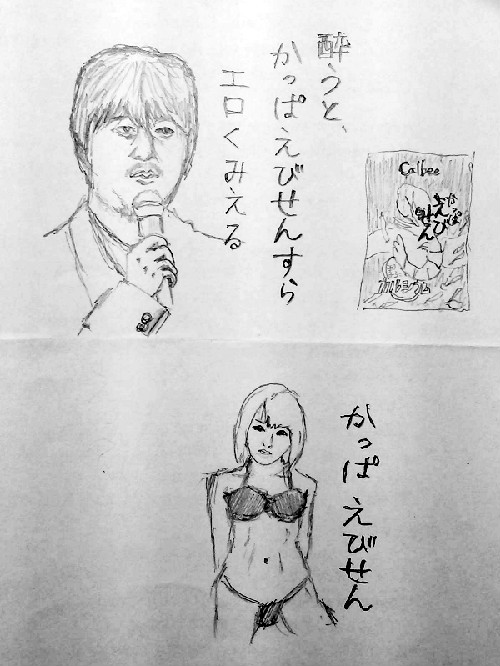 酔うと、
かっぱえびせんすら
エロくみえる
Calbee
かっぱ
えび
せん
カルシウム
かっぱえびせん